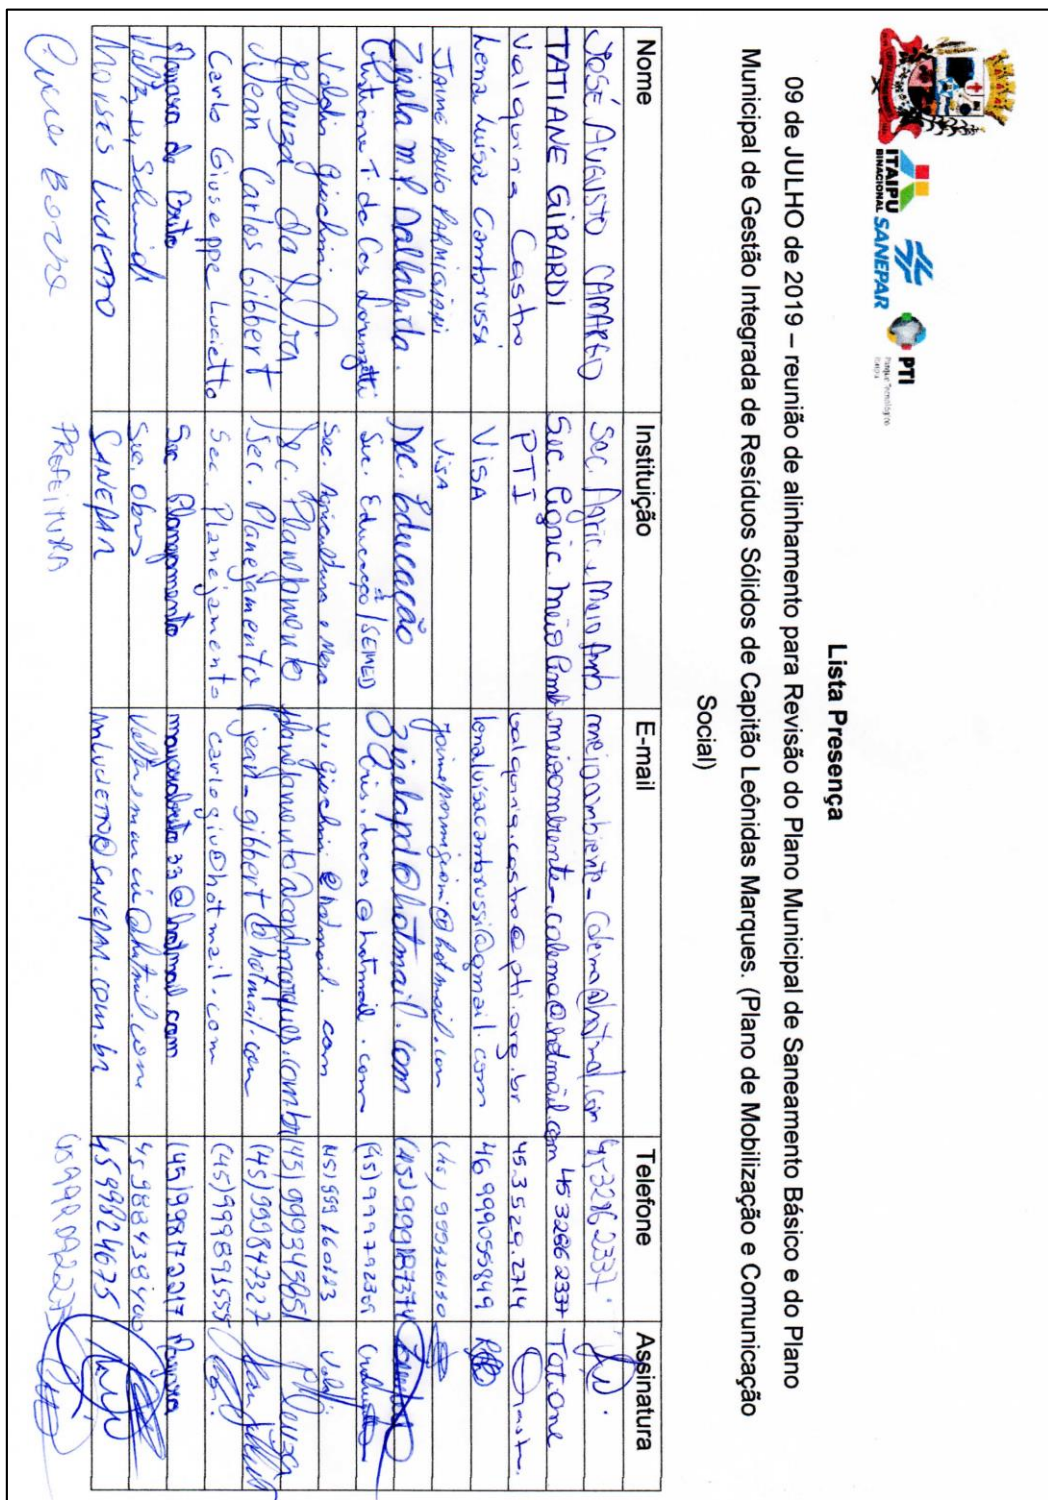 ITAIPU
BINACIONAL
SANEPAR
PTI
Parque Tecnológico
Itaipu
Lista Presença
09 de JULHO de 2019 – reunião de alinhamento para Revisão do Plano Municipal de Saneamento Básico e do Plano
Municipal de Gestão Integrada de Resíduos Sólidos de Capitão Leônidas Marques. (Plano de Mobilização e Comunicação
Social)
Nome Instituição E-mail Telefone Assinatura
JOSÉ AUGUSTO CAMARGO Sec. Agric. e Meio Amb. 45-32862337
TATIANE GIRARDI Sec. Agric. meio Amb. meioambiente-colema@hotmail.com 45 32862337 Tatiane
Valquiria Castro PTI valquiria.castro@pti.org.br 45.3529.2714
Lena Luísa Cambrussi VISA lenaluisacambrussi@gmail.com 46 999055849
JAIME PAULO PARMIGIANI VISA jaimeparmigiani@hotmail.com
Zijela M.P. Dallalinda. Sec. Educação zijelapd@hotmail.com (45) 999187374
Sec. Educação/SEMED
Valdir Giachini Sec. Agricultura e Meio v.giachini@hotmail.com
Cleuza da Silva Sec. Planejamento (45) 999343651 Cleuza
Jean Carlos Gibbert Sec. Planejamento jean_gibbert@hotmail.com (45) 999847327
Carlo Giuseppe Lucietto Sec. Planejamento carlogiu@hotmail.com (45) 999891555
Mayara de Brito Sec Planejamento mayarabrito33@hotmail.com (45) 998172217 Mayara
Sec. Obras 45 988438400
MOISES LUCIETTO SANEPAR mlucietto@sanepar.com.br 45 99824675
PREFEITURA